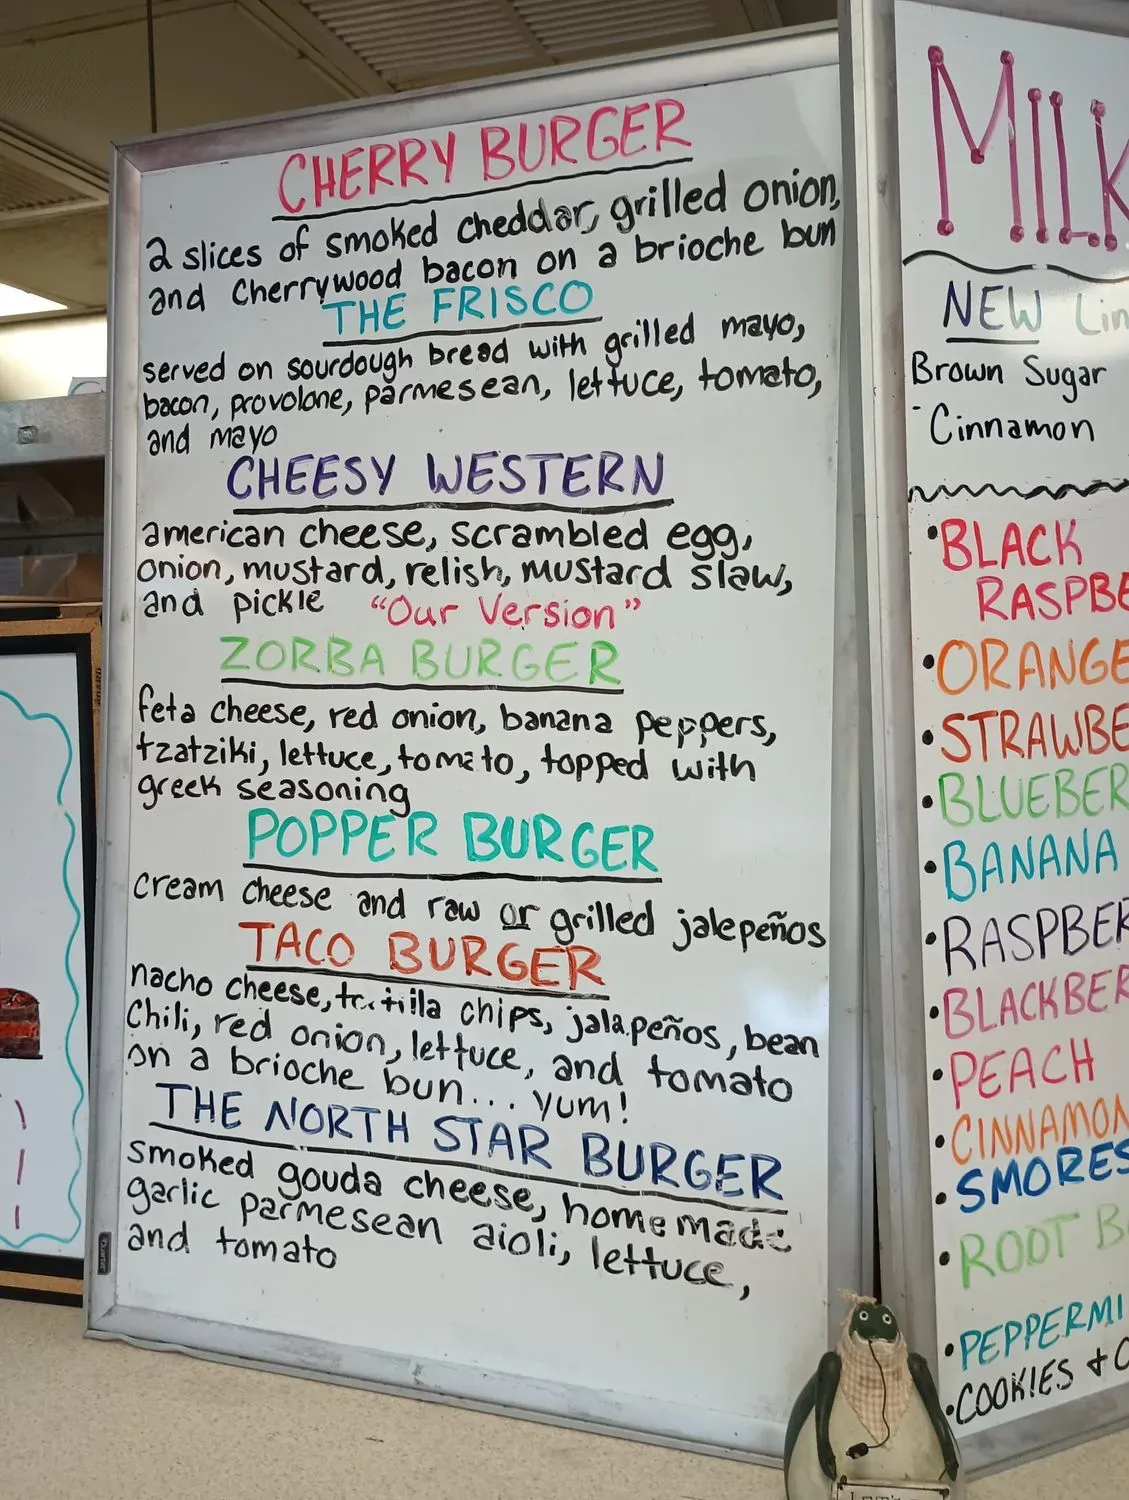 CHERRY BURGER
2 slices of smoked cheddar, grilled onion,
and Cherrywood bacon on a brioche bun
THE FRISCO
served on sourdough bread with grilled mayo,
bacon, provolone, parmesean, lettuce, tomato,
and mayo
CHEESY WESTERN
american cheese, scrambled egg,
onion, mustard, relish, mustard slaw,
and pickle "Our Version"
ZORBA BURGER
feta cheese, red onion, banana peppers,
tzatziki, lettuce, tomato, topped with
greek seasoning
POPPER BURGER
cream cheese and raw or grilled jalepeños
TACO BURGER
nacho cheese, tortilla chips, jalapeños, bean
Chili, red onion, lettuce, and tomato
on a brioche bun... yum!
THE NORTH STAR BURGER
smoked gouda cheese, homemade
garlic parmesean aioli, lettuce,
and tomato
Quartet
MILK
NEW
Brown Sugar
Cinnamon
•BLACK
RASPBE
•ORANGE
•STRAWBE
•BLUEBER
•BANANA
•RASPBER
•BLACKBER
•PEACH
•CINNAMON
•SMORES
•ROOT B
•PEPPERMI
•COOKIES + C